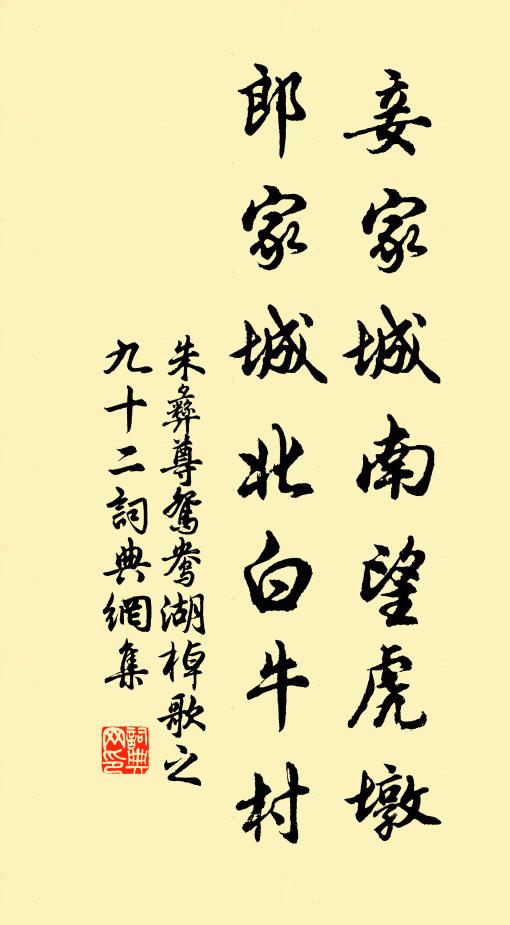 妾家城南望虎墩
郎家城北白牛村
朱彝尊鴛鴦湖棹歌之
九十二詞典網集
詞典
网印